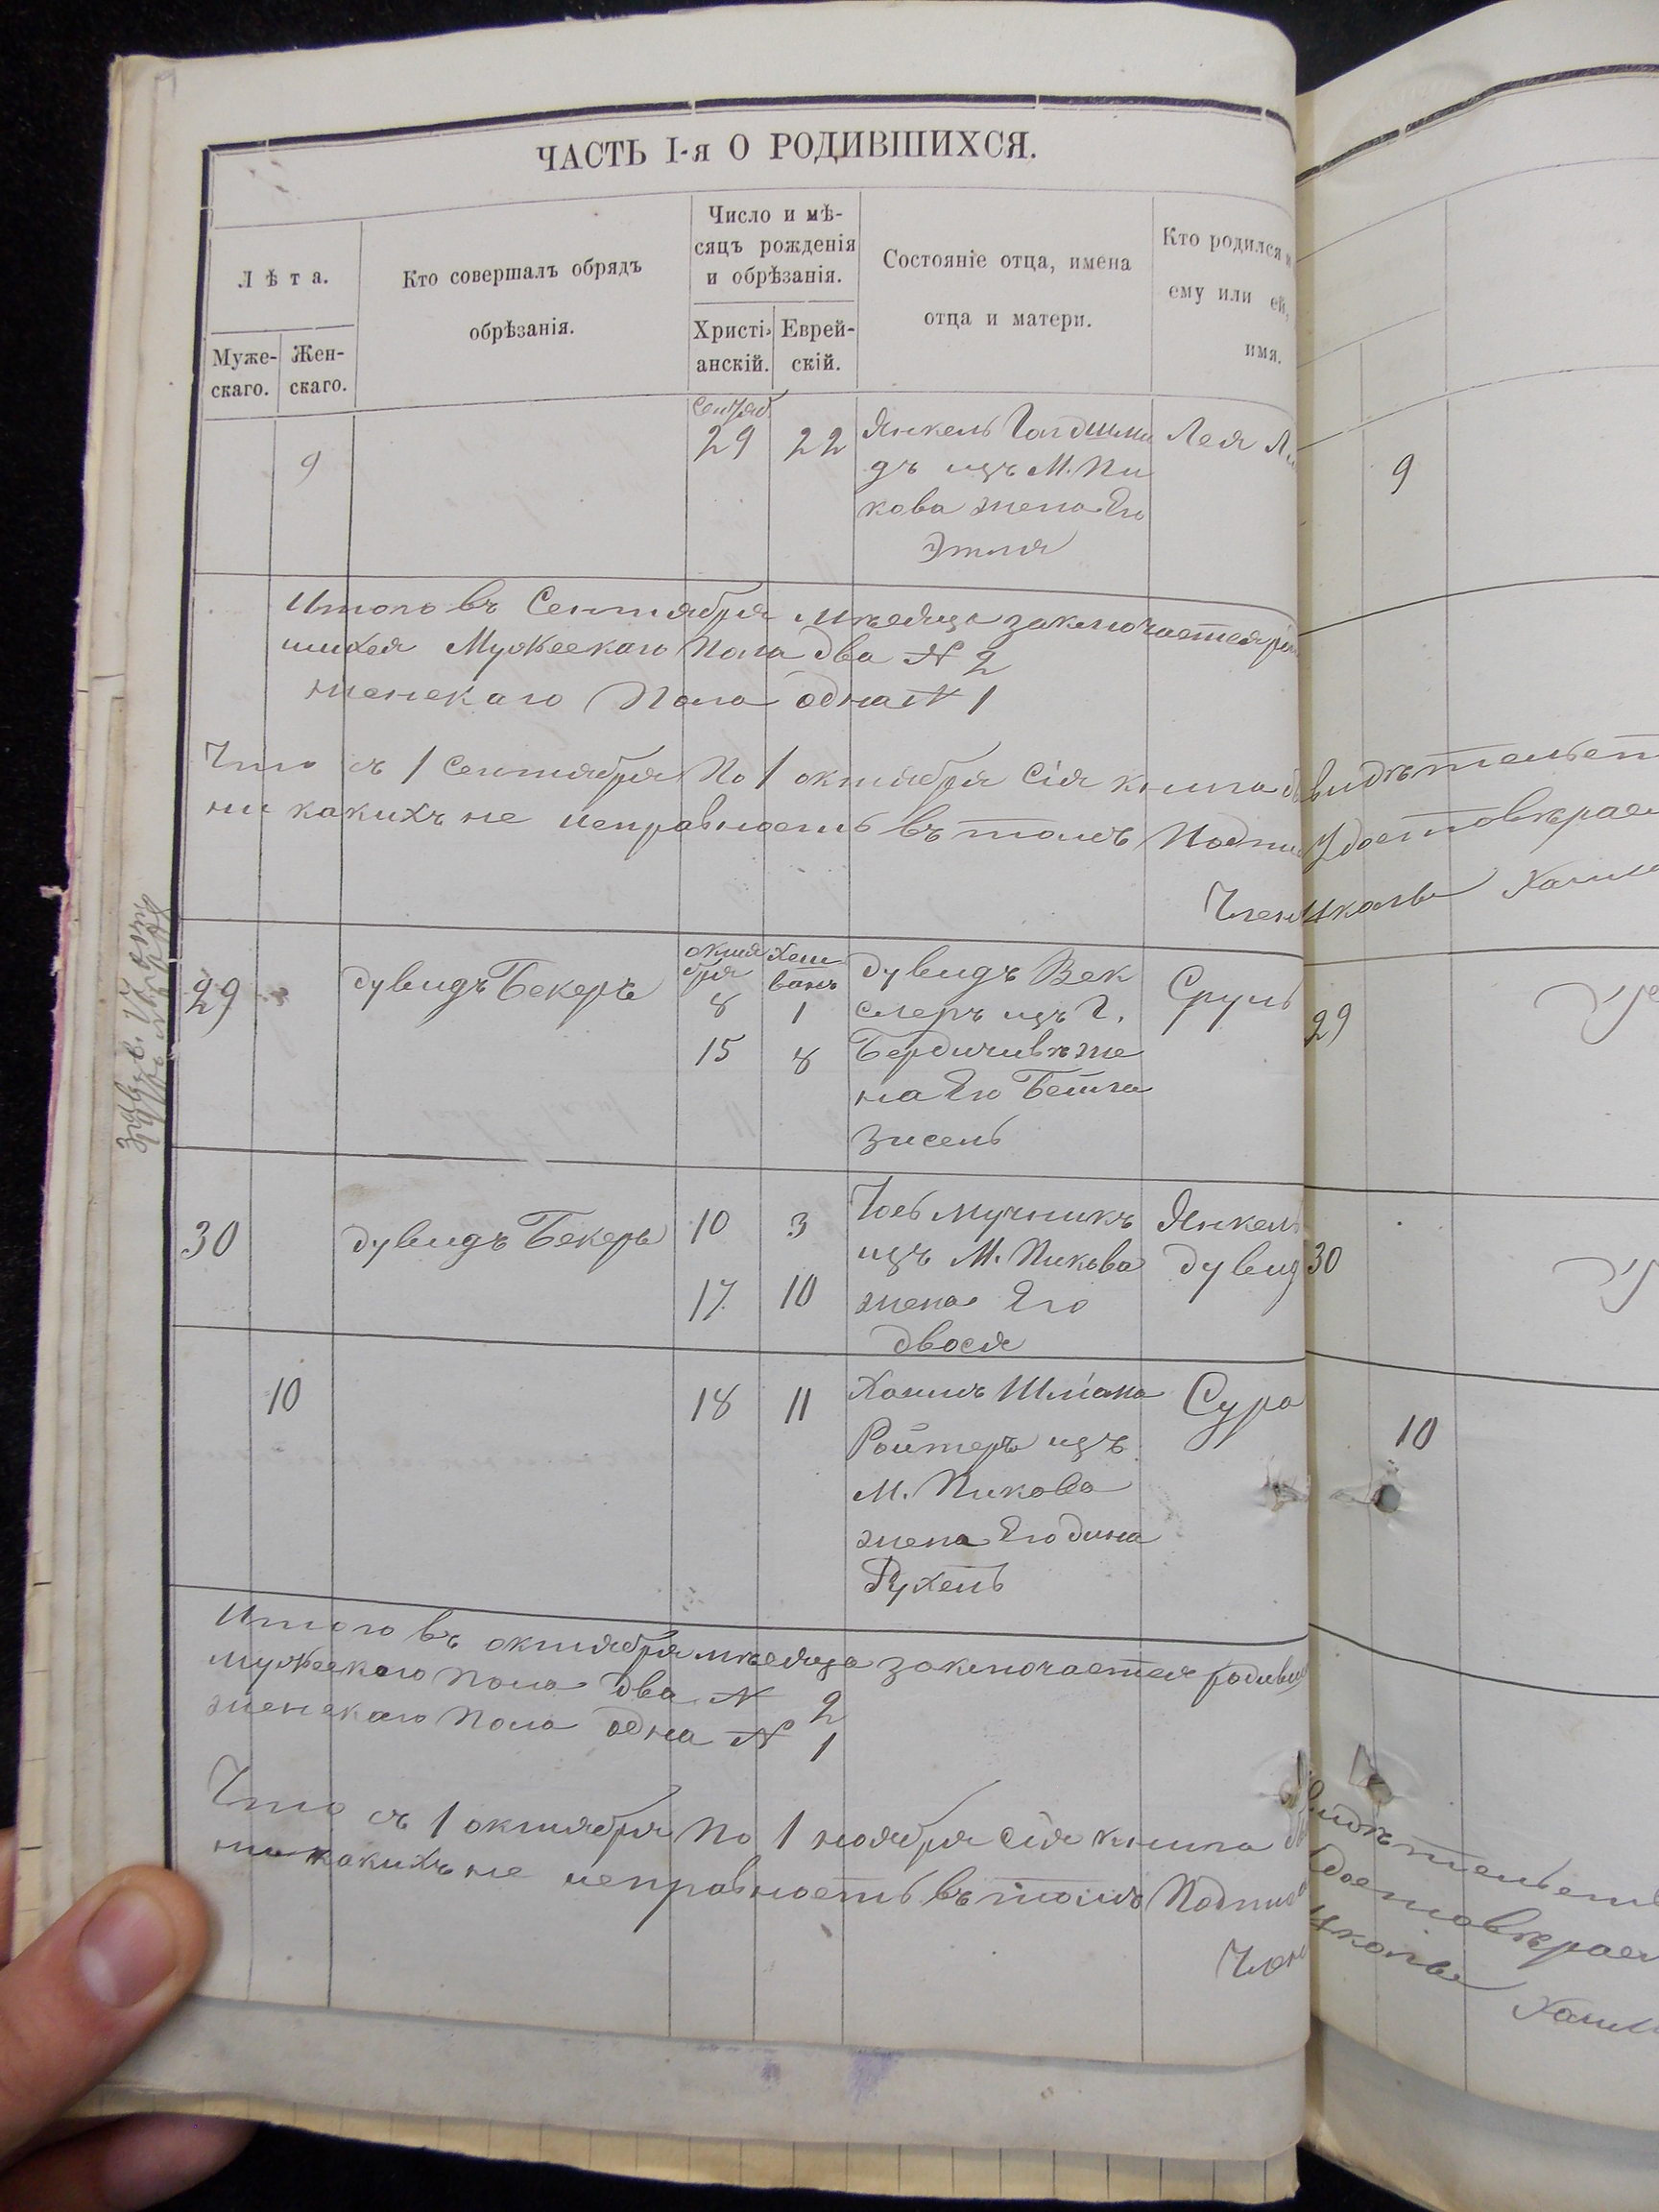 ЧАСТЬ I-я О РОДИВШИХСЯ.
Лѣта.
Муже-
скаго.
Жен-
скаго.
Кто совершалъ обрядъ
обрѣзанія.
Число и мѣ-
сяцъ рожденія
и обрѣзанія.
Христі-
анскій.
Еврей-
скій.
Состояніе отца, имена
отца и матери.
Кто родился и
ему или ей,
имя.
9
29
22
Янкель
дъ изъ М. Пи
кова жена Его
Этля
Лея
9
Итого въ Сентября мѣсяца заключается
шихся Мужескаго Пола два № 2
женскаго Пола одна № 1
Что съ 1 Сентября По 1 октября Сія книга
ни какихъ не исправность въ томъ
Член
29
дувидъ Бекеръ
октя
бря
8
15
Хеш
ванъ
1
8
дувидъ Век
слеръ изъ Г.
Бердичивъ же
на Его Бейла
Зисель
Сруль
29
30
дувидъ Бекеръ
10
17
3
10
Іось мучникъ
изъ М. Пикова
жена Его
двося
Янкель
дувид
30
10
18
11
Хаимъ Шліома
Ройтеръ изъ
М. Пикова
жена Его дина
Рухель
Сура
10
Итого въ октября мѣсяца заключается родивш
мужескаго пола два № 2
женскаго пола одна № 1
Что съ 1 октября По 1 ноября Сія книга
ни какихъ не исправность въ томъ
Член